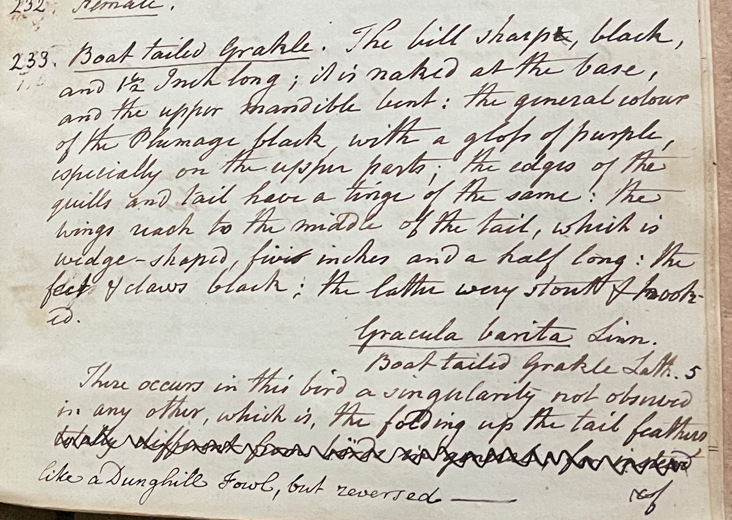 232. Female.
233. Boat tailed Grakle. The bill sharp, black,
and 1½ Inch long; it is naked at the base,
and the upper mandible bent: the general colour
of the Plumage black, with a gloss of purple,
especially on the upper parts; the edges of the
quills and tail have a tinge of the same: the
wings reach to the middle of the tail, which is
wedge-shaped, five inches and a half long: the
feet & claws black; the latter very stout & hook-
ed.
Gracula barita Linn.
Boat tailed Grakle Lath. 5
There occurs in this bird a singularity not observed
in any other, which is, the folding up the tail feathers
totally different from birds in general, for instead
like a Dunghill Fowl, but reversed —
of